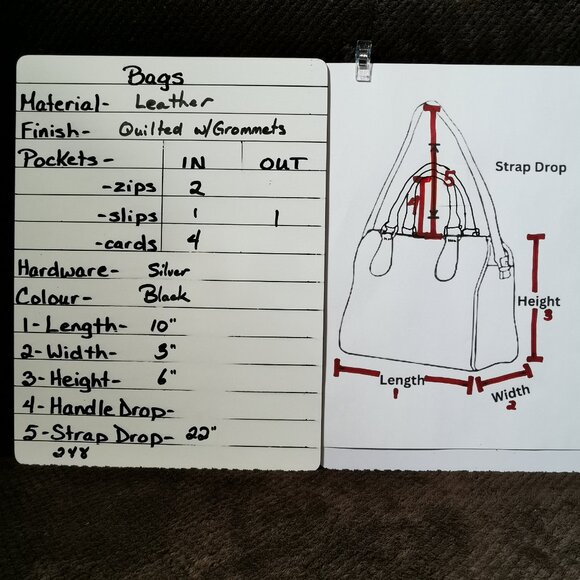 Bags
Material- Leather
Finish- Quilted w/Grommets
Pockets- IN OUT
-zips 2
-slips 1 1
-cards 4
Hardware- Silver
Colour- Black
1-Length- 10"
2-Width- 3"
3-Height- 6"
4-Handle Drop-
5-Strap Drop- 22"
248
Strap Drop
5
4
Height
3
Length
1
Width
2